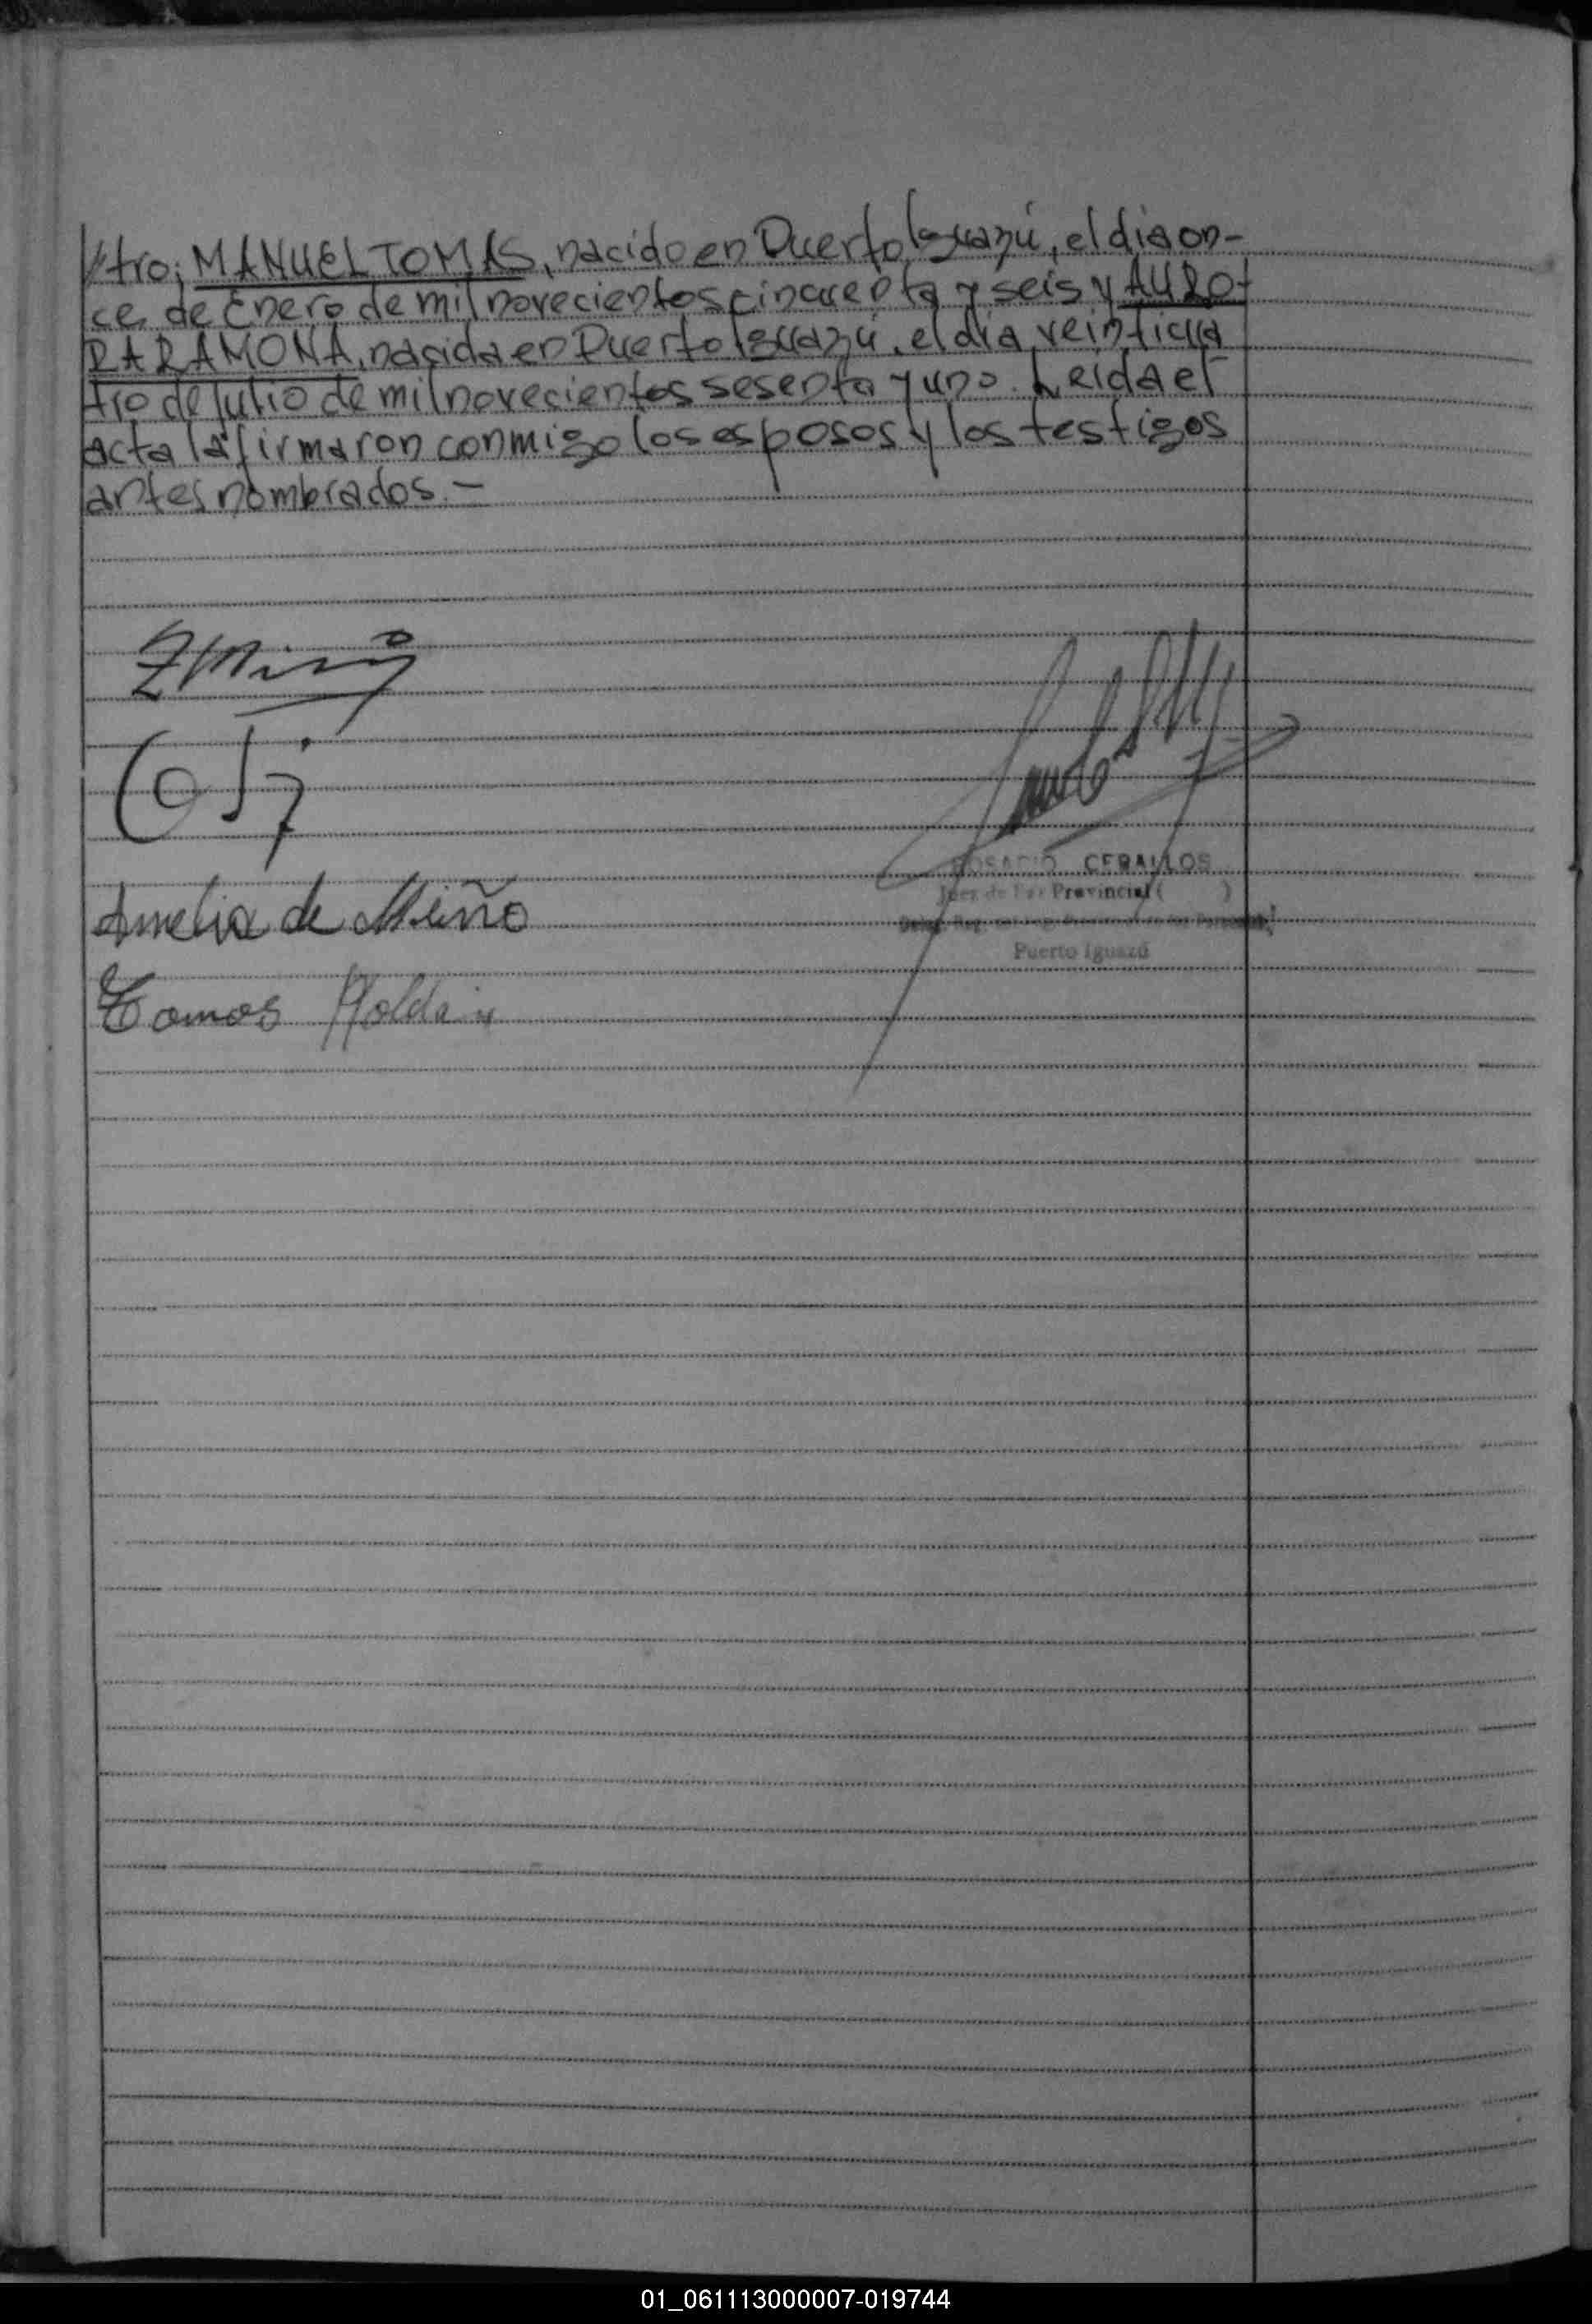 tro; MANUEL TOMAS, nacido en Puerto Iguazú, el dia on-
ce de Enero de mil novecientos cincuenta y seis y AURO-
RA RAMONA, nacida en Puerto Iguazú, el dia veinticua
tro de Julio de mil novecientos sesenta y uno. Leida el
acta la firmaron conmigo los esposos y los testigos
antes nombrados.-
Amelia de Miño
ROSARIO CEBALLOS
Juez de Paz Provincial ( )
Puerto Iguazú
Tomas Roldan
01_061113000007-019744